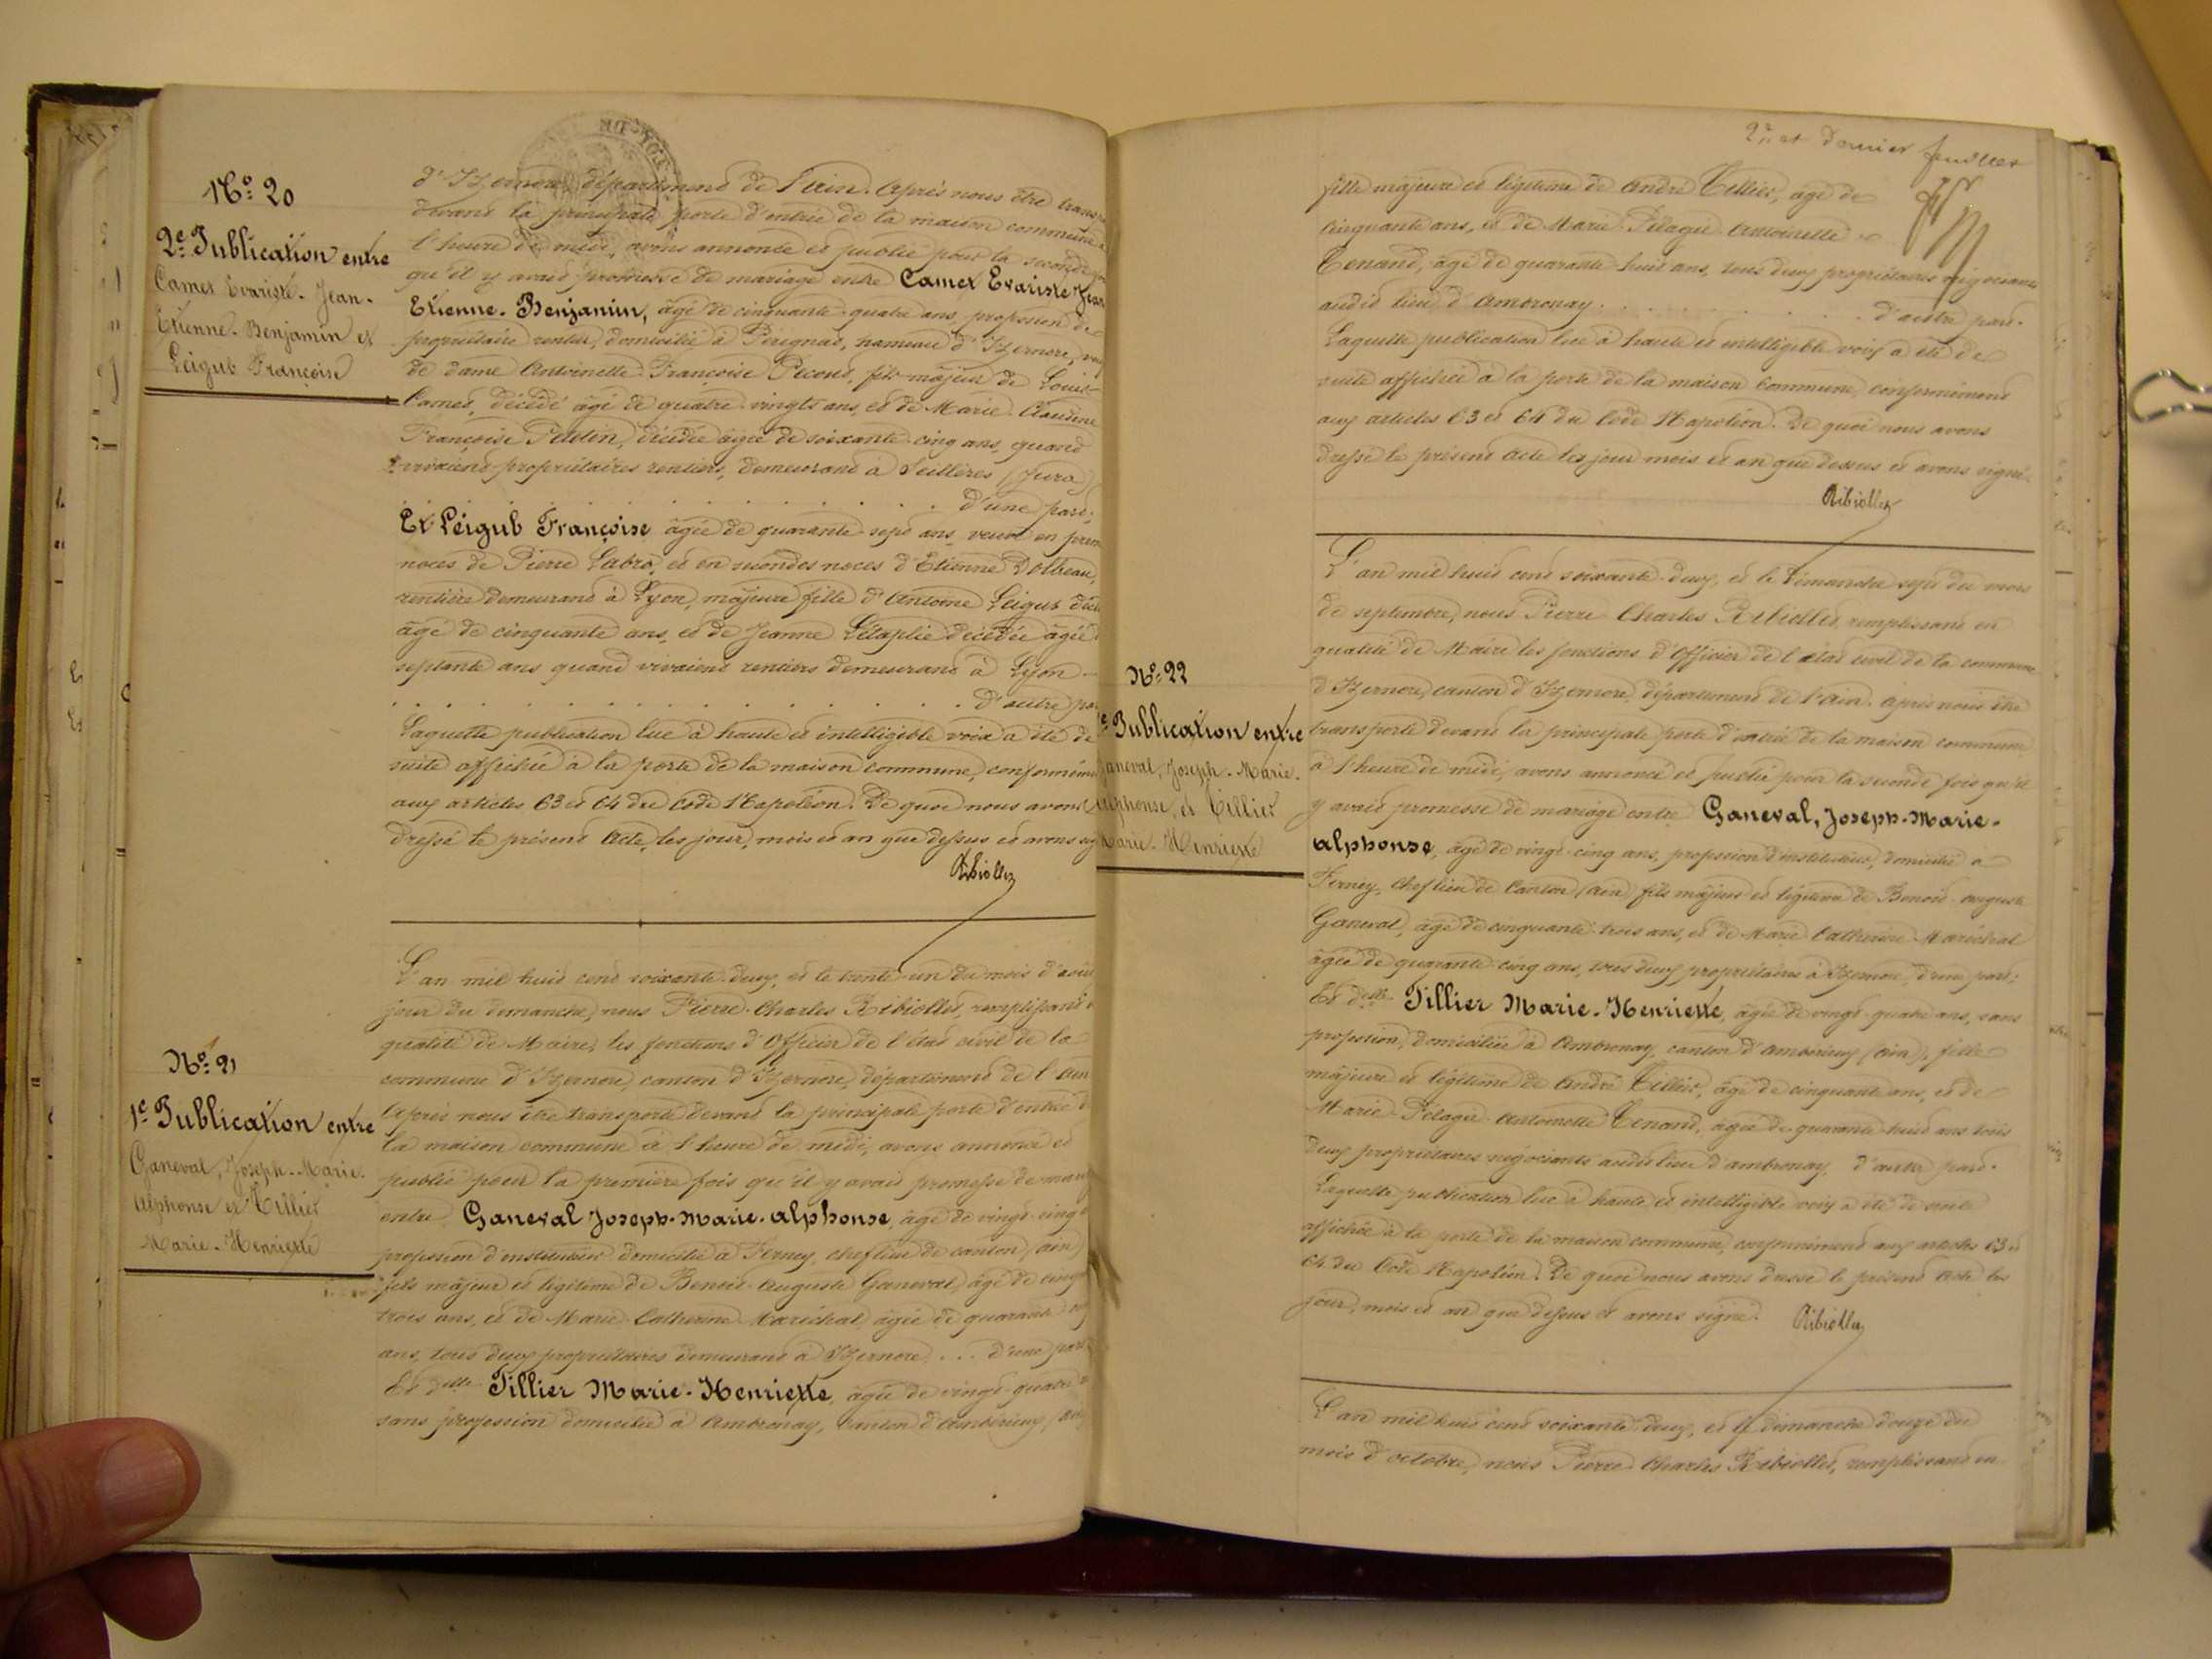 No. 20
2e. Publication entre
Camet Evariste. Jean-
Etienne. Benjamin et
Leigub Françoise
d'Izernore, département de l'ain. Après nous être trans
devant la principale porte d'entrée de la maison commune
l'heure de midi, avons annoncé et publié pour la seconde
qu'il y avait promesse de mariage entre Camet Evariste Jean
Etienne. Benjamin, âgé de cinquante quatre ans, profession de
propriétaire rentier, domicilié à Pérignat, hameau d'Izernore,
de dame Antoinette Françoise Pécout, fils majeur de Louis
Camet, décédé âgé de quatre-vingts ans, et de Marie Claudine
Françoise décédée âgée de soixante cinq ans, quand
vivaient propriétaires rentiers, demeurant à Seillères (Jura)
d'une part;
Et Leigub Françoise âgée de quarante sept ans, veuve en prem
noces de Pierre Labro, et en secondes noces d'Etienne Dolbeau,
rentière demeurant à Lyon, majeure fille d'Antoine Leigub
âgé de cinquante ans, et de Jeanne Létaplie décédée âgée
septante ans quand vivaient rentiers demeurant à Lyon
d'autre pa
Laquelle publication lue à haute et intelligible voix a été de
suite affichée à la porte de la maison commune, conforméme
aux articles 63 et 64 du Code Napoléon. De quoi nous avons
dressé le présent acte, les jour, mois et an que dessus et avons sig
Ribiollet
No. 21
1e. Publication entre
Ganeval, Joseph-Marie.
Alphonse et Tillier
Marie-Henriette
L'an mil huit cent soixante-deux, et le trente-un du mois d'août
jour du dimanche, nous Pierre Charles Ribiollet, remplissant
qualité de Maire, les fonctions d'Officier de l'état civil de la
commune d'Izernore, canton d'Izernore, département de l'Ain
Après nous être transporté devant la principale porte d'entrée d
la maison commune à l'heure de midi, avons annoncé et
publié pour la première fois qu'il y avait promesse de mari
entre Ganeval Joseph-Marie-alphonse, âgé de vingt-cinq
profession d'instituteur domicilié à Ferney, chef lieu de canton (ain)
fils majeur et légitime de Benoit-Auguste Ganeval, âgé de cinq
trois ans, et de Marie Catherine Maréchal âgée de quarante
ans, tous deux propriétaires demeurant à Izernore ... d'une part
Et delle Tillier Marie-Henriette, âgée de vingt-quatre
sans profession domiciliée à Ambronay, canton d'Ambérieux (ain
2e. et dernier feuillet
fille majeure et légitime de André Tillier, âgé de
cinquante ans, et de Marie Pélagie Antoinette
Tenand, âgé de quarante huit ans, tous deux propriétaires négociants
audit lieu d'Ambronay. d'autre part.
Laquelle publication lue à haute et intelligible voix a été de
suite affichée à la porte de la maison commune, conformément
aux articles 63 et 64 du Code Napoléon. De quoi nous avons
dressé le présent acte les jour mois et an que dessus et avons signé
Ribiollet
No. 22
e Publication entre
Ganeval, Joseph-Marie.
Alphonse, et Tillier
Marie-Henriette
L'an mil huit cent soixante-deux, et le Dimanche sept du mois
de septembre, nous Pierre Charles Ribiollet remplissant en
qualité de Maire les fonctions d'Officier de l'état civil de la commune
d'Izernore, canton d'Izernore, département de l'Ain. Après nous être
transporté devant la principale porte d'entrée de la maison commune
à l'heure de midi, avons annoncé et publié pour la seconde fois qu'il
y avait promesse de mariage entre Ganeval, Joseph-Marie-
alphonse, âgé de vingt-cinq ans, profession d'instituteur, domicilié à
Ferney, Chef lieu de Canton (Ain) fils majeur et légitime de Benoit-auguste
Ganeval, âgé de cinquante-trois ans, et de Marie Catherine Maréchal
âgée de quarante cinq ans, tous deux propriétaires à Izernore, d'une part;
Et delle Tillier Marie-Henriette, âgée de vingt-quatre ans, sans
profession, domiciliée à Ambronay, canton d'Ambérieux (Ain), fille
majeure et légitime de André Tillier, âgé de cinquante ans, et de
Marie-Pélagie-Antoinette Tenand, âgée de quarante-huit ans tous
deux propriétaires négociants audit lieu d'ambronay, d'autre part.
Laquelle publication lue à haute et intelligible voix a été de suite
affichée à la porte de la maison commune, conformément aux articles 63 et
64 du Code Napoléon. De quoi nous avons dressé le présent acte les
jour, mois et an que dessus et avons signé. Ribiollet
L'an mil huit cent soixante-deux, et le dimanche douze du
mois d'octobre, nous Pierre Charles Ribiollet, remplissant en